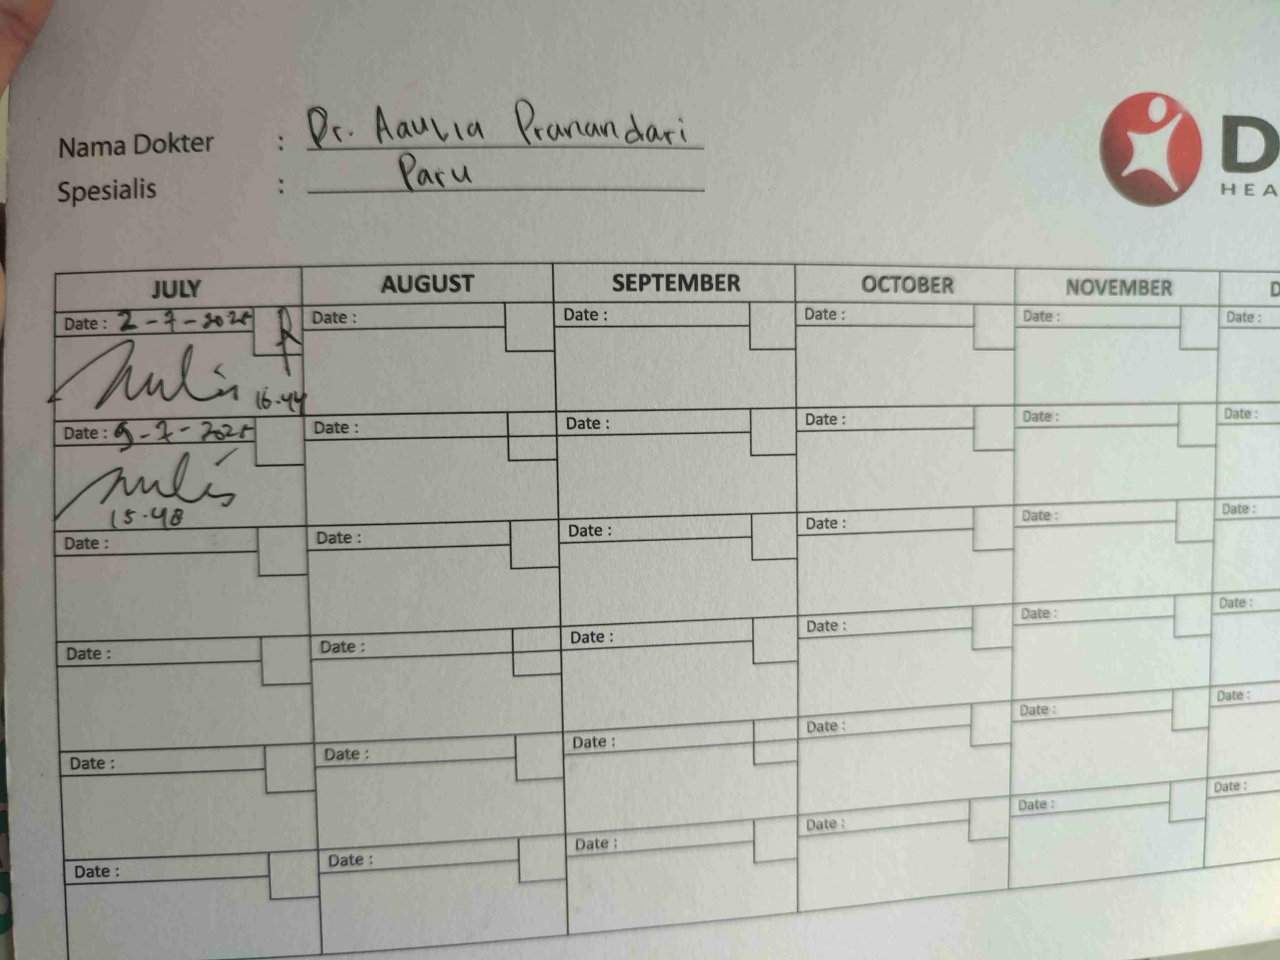 Nama Dokter : Dr. Aaulia Pranandari
Spesialis : Paru
D
HEA
JULY AUGUST SEPTEMBER OCTOBER NOVEMBER D
Date : 2-7-2025 Date : Date : Date : Date : Date :
16.44
Date : 9-7-2025 Date : Date : Date : Date : Date :
15.48
Date : Date : Date : Date : Date : Date :
Date : Date : Date : Date : Date : Date :
Date : Date : Date : Date : Date : Date :
Date : Date : Date : Date : Date : Date :